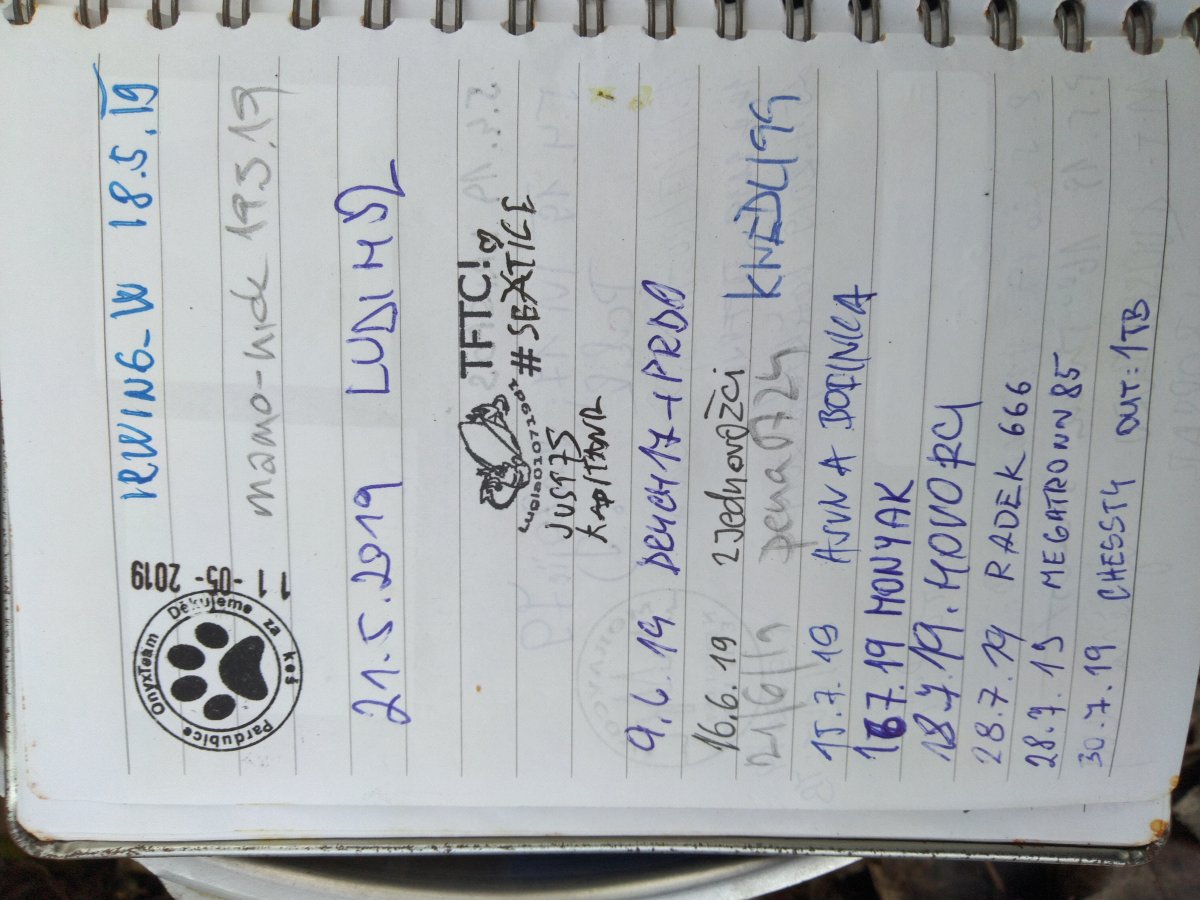 OnyxTeam Děkujeme za keš Pardubice
11-05-2019
IRWING_W 18.5.19
mamo-hide 19.5.19
21.5.2019 LUDIMSL
TFTC!
#SEXTICE
JUST75
9.6.19 DRUCH17+PRDA
16.6.19 2Jednovožci
21/6/19 pena0724 KNEDLI99
15.7.19 AJVN A BOREINKA
167.19 MONYAK
18.7.19. MOVORCY
28.7.19 RADEK666
28.7.19 MEGATRONN85
30.7.19 CHESST4 OUT:1TB